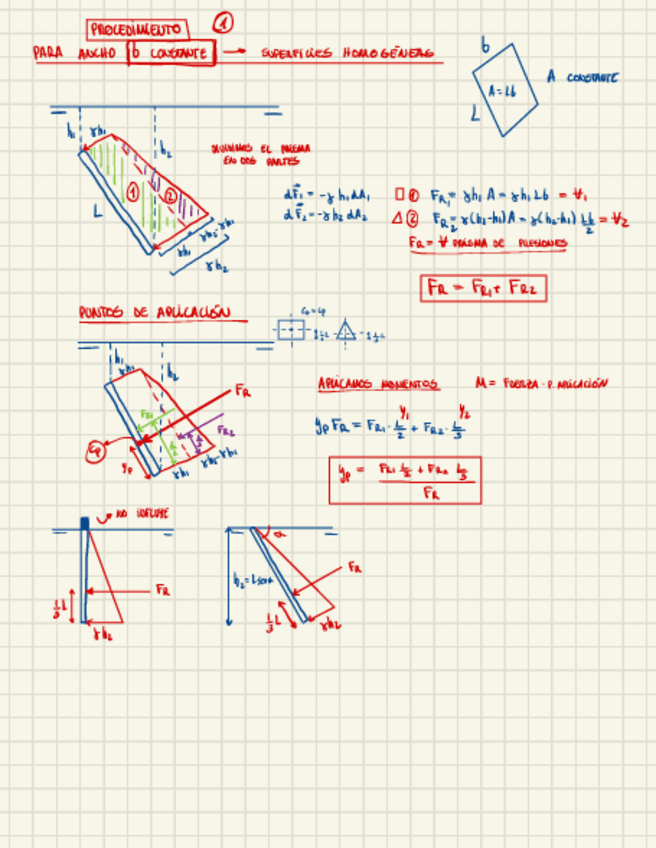 PROCEDIMIENTO ①
PARA ANCHO b CONSTANTE → SUPERFICIES HOMOGÉNEAS
b
A = Lb
L
A CONSTANTE
h₁ γh₁ h₂
DIVIDIMOS EL PRISMA
EN DOS PARTES
① ②
L
γh₁ γh₂-γh₁
γh₂
dF₁ = -γ h₁ dA₁
dF₂ = -γ h₂ dA₂
□ ① FR₁ = γh₁ A = γh₁ Lb = ∀₁
△ ② FR₂ = γ(h₂-h₁)A = γ(h₂-h₁) Lb/2 = ∀₂
FR = ∀ PRISMA DE PRESIONES
FR = FR₁ + FR₂
PUNTOS DE APLICACIÓN
CG = CP
h₁ γh₁ h₂
FR
FR₁
FR₂
CP
yP
γh₁ γh₂-γh₁
APLICAMOS MOMENTOS M = FUERZA · P. APLICACIÓN
y₁ y₂
yP FR = FR₁ · L/2 + FR₂ · L/3
yP = FR₁ L/2 + FR₂ L/3 / FR
NO INFLUYE
1/3 L
FR
γh₂
α
h₂ = L senα
FR
1/3 L
γh₂